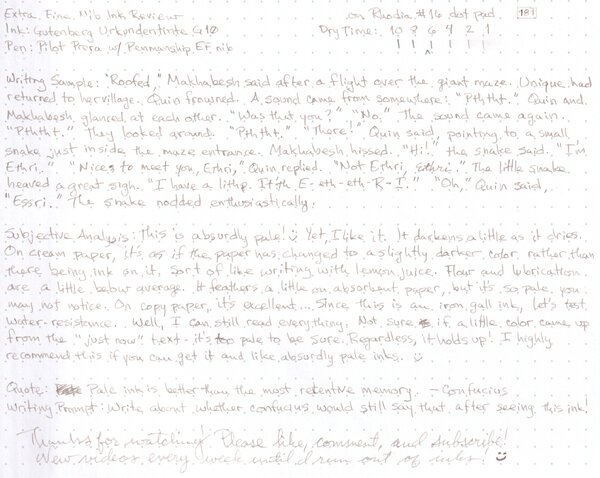 Extra Fine Nib Ink Review on Rhodia #16 dot pad. 181
Ink: Gutenberg Urkundentinte G10 Dry Time: 10 8 6 4 2 1
Pen: Pilot Prera w/ Penmanship EF nib
Writing Sample: "Roofed," Makhabesh said after a flight over the giant maze. Unique had
returned to her village. Quin frowned. A sound came from somewhere: "Pththt." Quin and
Makhabesh glanced at each other. "Was that you?" "No." The sound came again.
"Pththt." They looked around. "Pththt." "There!" Quin said, pointing to a small
snake just inside the maze entrance. Makhabesh hissed. "Hi!" the snake said. "I'm
Ethri." "Nice to meet you, Ethri," Quin replied. "Not Ethri, ethri." The little snake
heaved a great sigh. "I have a lithp. It'th E-eth-eth-R-I." "Oh," Quin said,
"Essri." The snake nodded enthusiastically.
Subjective Analysis: This is absurdly pale! Yet, I like it. It darkens a little as it dries.
On cream paper, it's as if the paper has changed to a slightly darker color rather than
there being ink on it. Sort of like writing with lemon juice. Flow and lubrication
are a little below average. It feathers a little on absorbent paper, but it's so pale you
may not notice. On copy paper, it's excellent... Since this is an iron gall ink, let's test
water-resistance. Well, I can still read everything. Not sure if a little color came up
from the "just now" text - it's too pale to be sure. Regardless, it holds up! I highly
recommend this if you can get it and like absurdly pale inks.
Quote: Pale ink is better than the most retentive memory. - Confucius
Writing Prompt: Write about whether Confucius would still say that after seeing this ink!
Thanks for watching! Please like, comment, and subscribe!
New videos every week until I run out of inks!